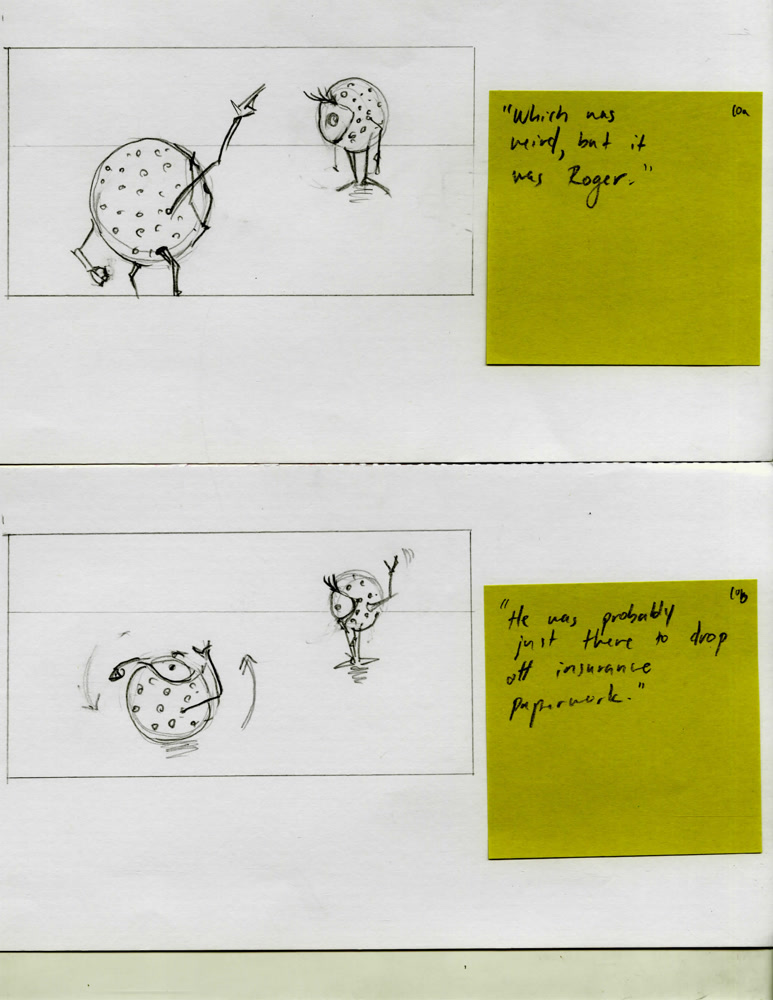 10a
"Which was
weird, but it
was Roger."
10b
"He was probably
just there to drop
off insurance
paperwork."